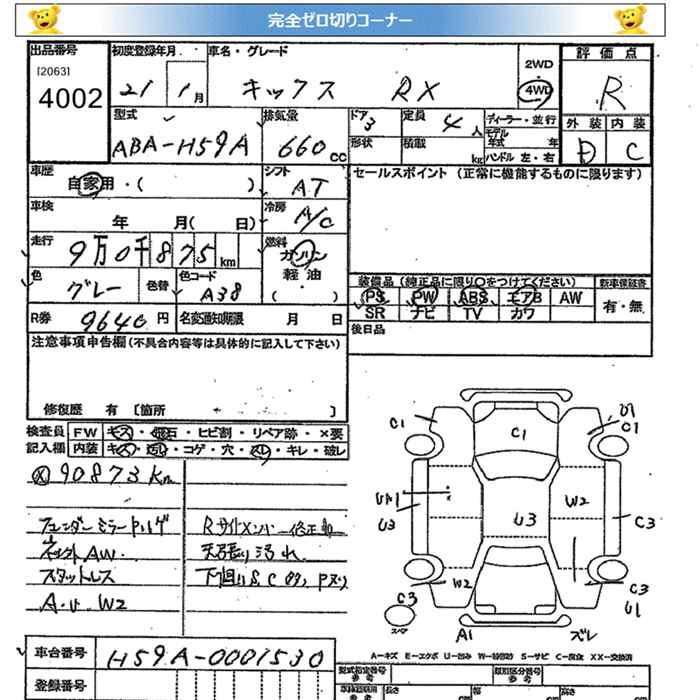 完全ゼロ切りコーナー
出品番号 初度登録年月 車名・グレード 評価点
[2063]
4002 21 1月 キックス RX 2WD 4WD R
外装 内装
D C
型式 排気量 ドア 定員 ディーラー・並行
ABA-H59A 660cc 3 4人 モデル年式 年
形状 積載 kg ハンドル 左・右
車歴 シフト セールスポイント (正常に機能するものに限ります)
自家用・( ) AT
車検 冷房
年 月( 日) A/C
走行 燃料
9万0千875km ガソリン
軽油
( )
色 色替 色コード
グレー A38
装備品 (純正品に限り○をつけてください) 新車保証書
PS PW ABS エアB AW 有・無
SR ナビ TV カワ
R券 9640円 名変通知期限 月 日
後日品
注意事項申告欄 (不具合内容等は具体的に記入して下さい)
修復歴 有 [箇所 ]
検査員 FW キズ・飛石・ヒビ割・リペア跡・×要
記入欄 内装 キズ・汚れ・コゲ・穴・スレ・キレ・破レ
90873km
フェンダーミラー
Rサイドメンバー修正
AW
天張り汚れ
スタットレス
A.U W2
C1 C1 C1
U3 U3 W2 C3
W2 C3 C3 U1
スペア A1 ズレ
A-キズ E-エクボ U-凹み W-補修跡 S-サビ C-腐食 XX-交換済
車台番号 H59A-0001530
登録番号
型式指定番号 類別区分番号
長さ cm 幅 cm 高さ cm